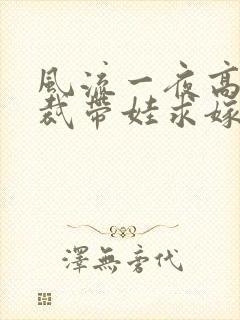 風流一夜高
裁帶娃求嫁
澤無旁代